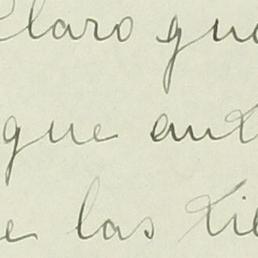 Claro que
que aun
e las tie